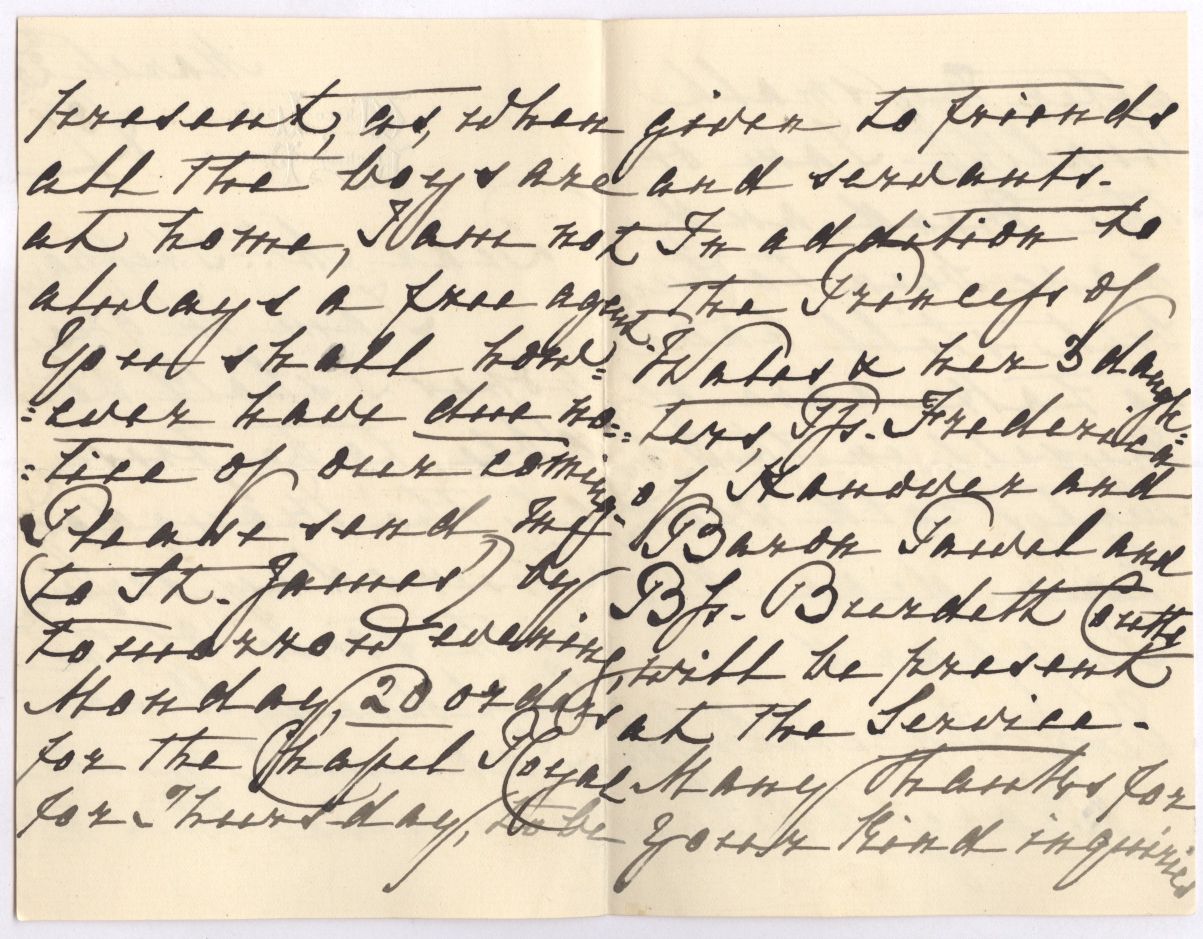 present, as, when
all the boys are
at home, I am not
always a free agent.
You shall how=
=ever have due no=
=tice of our coming.
Please send my
(to St. James) by
tomorrow evening,
Monday, 20 orders
for the Chapel Royal
for Thursday, to be
given to friends
and servants.
In addition to
the Princess of
Wales & her 3 daugh=
=ters, Pss. Frederica
of Hanover and
Baron Pawel and
Bss. Burdett Coutts
will be present
at the Service -
Many thanks for
your kind inquiries